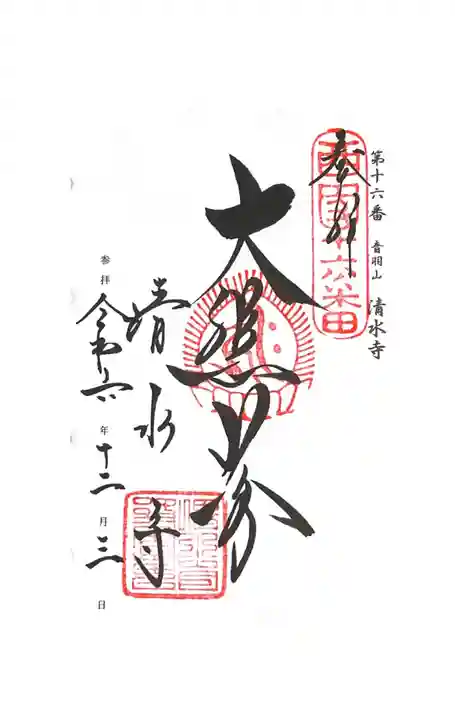 第十六番 音羽山 清水寺
奉拝
西国十六番
大悲閣
清水寺
参拝 令和六年十二月三日